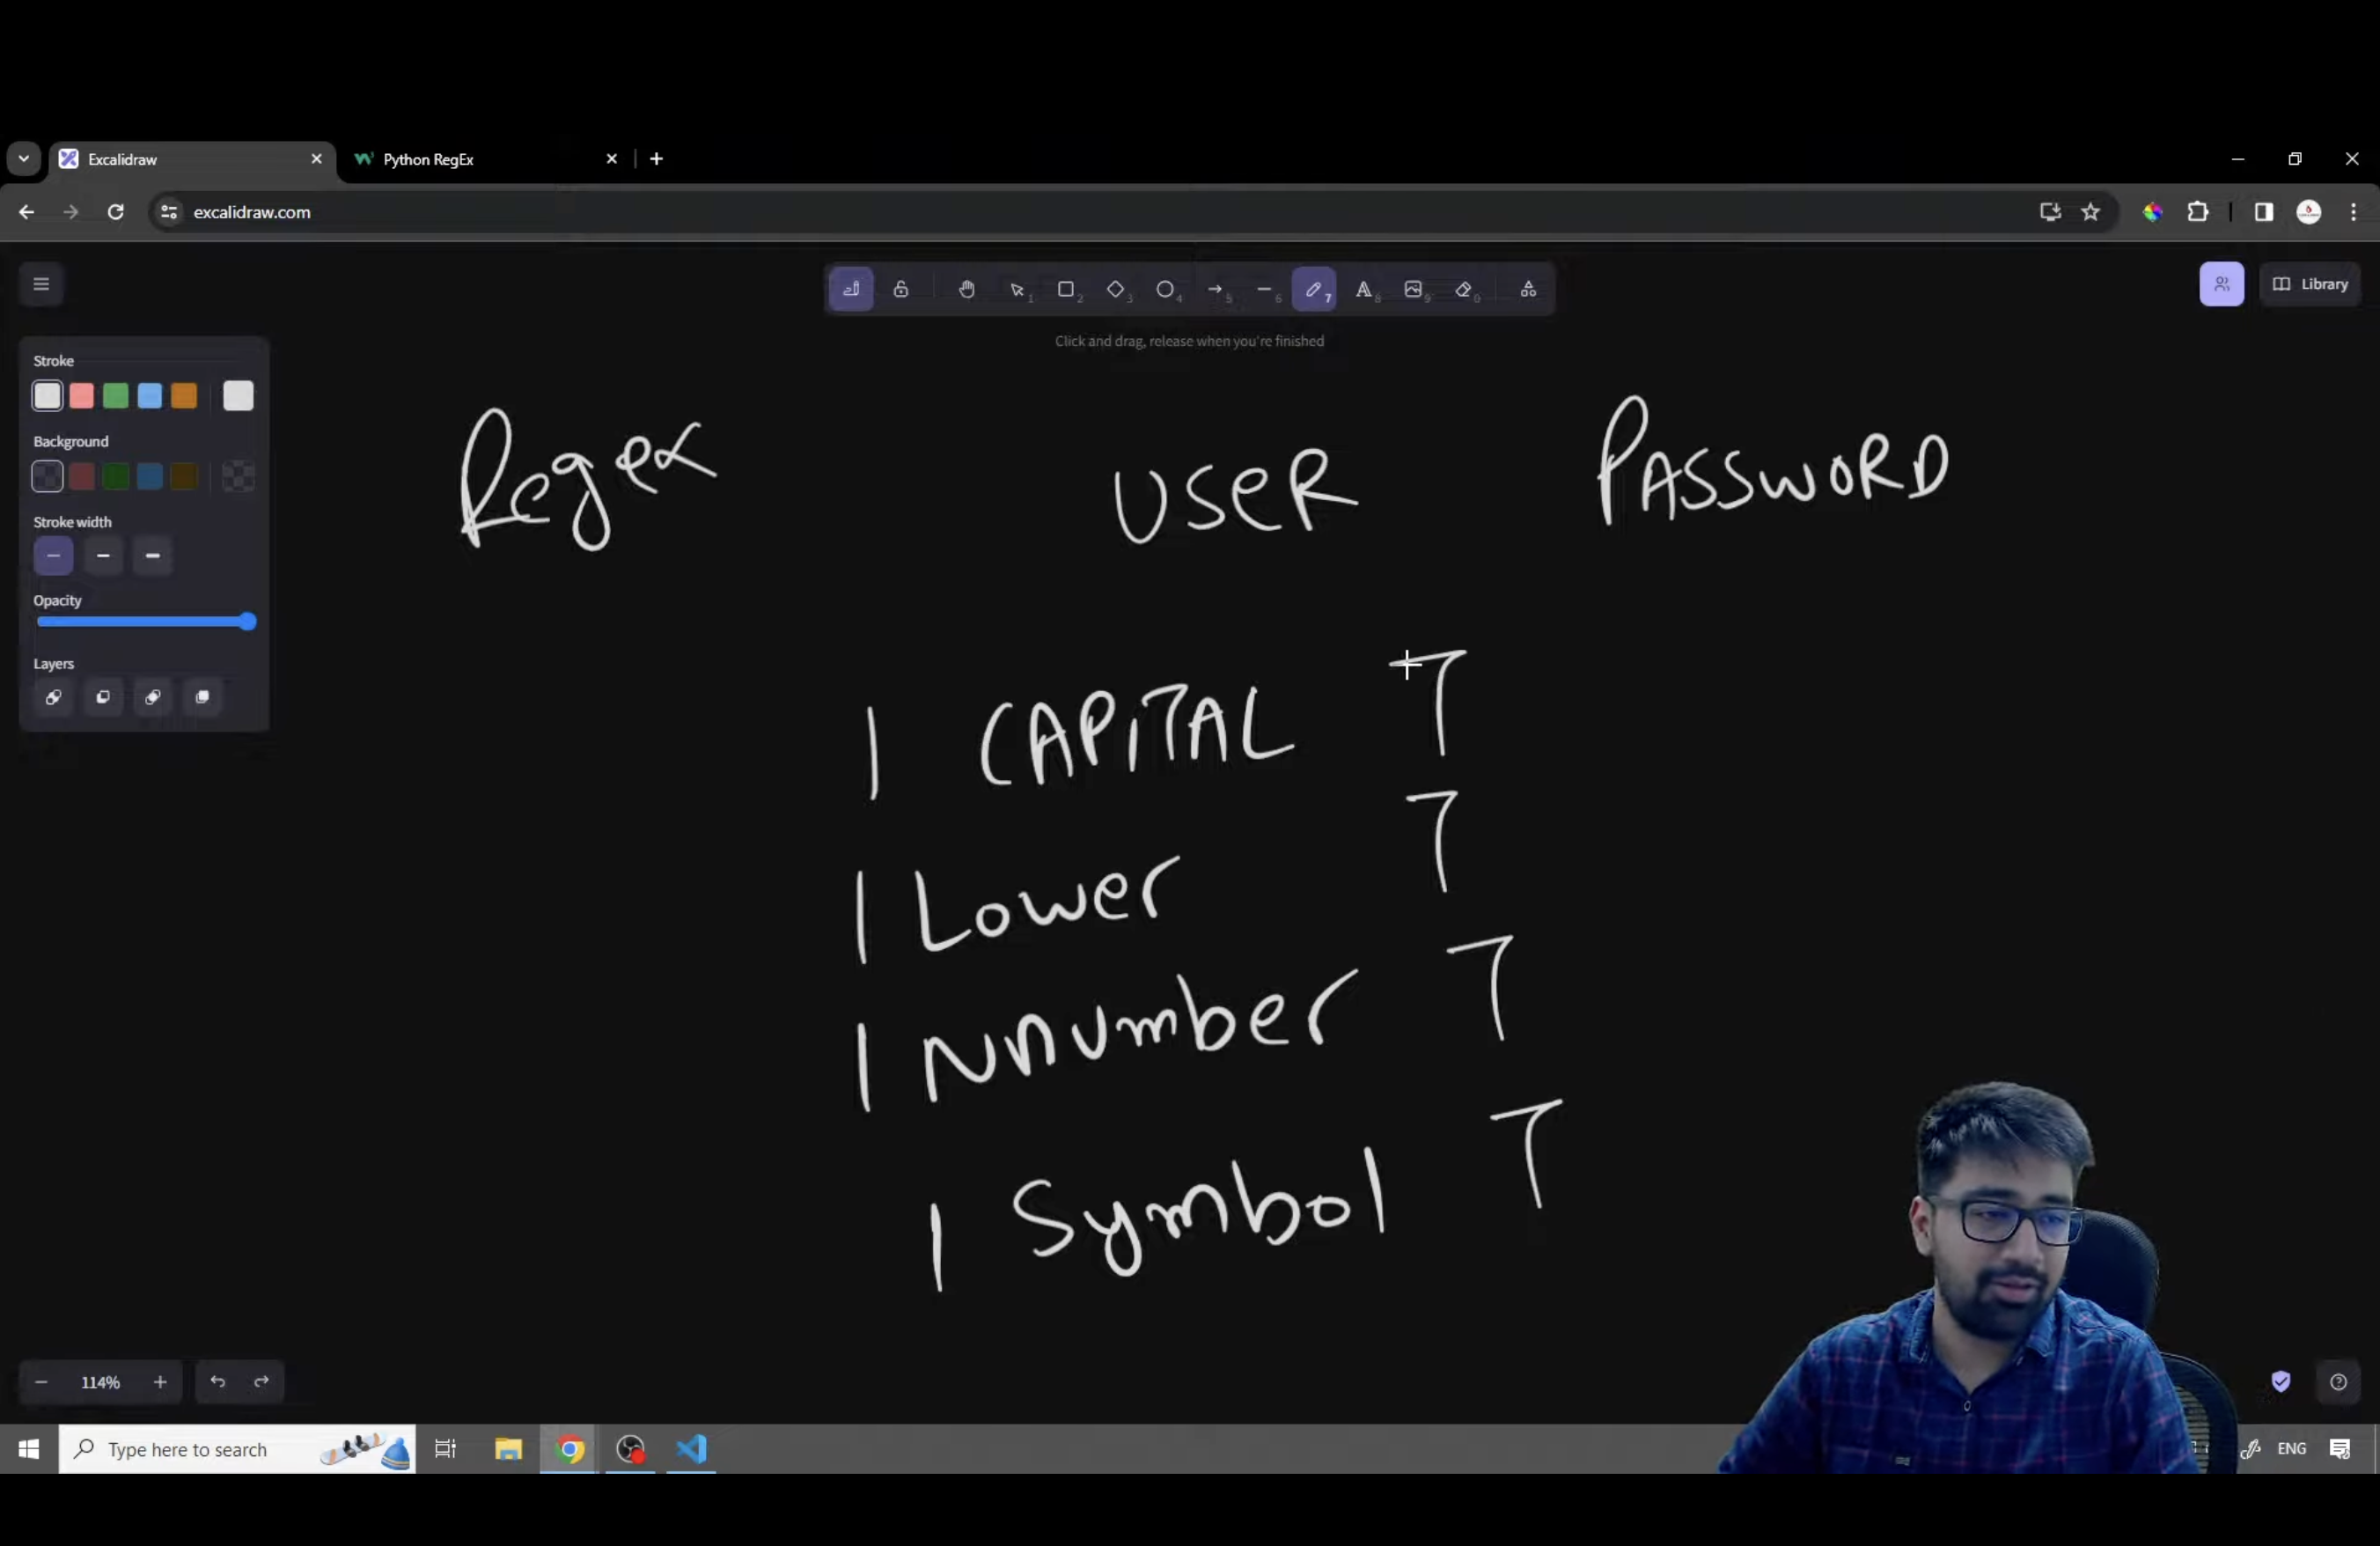 Excalidraw
Python RegEx
excalidraw.com
1 2 3 4 5 6 7 8 9 0
Library
Click and drag, release when you're finished
Stroke
Background
Stroke width
Opacity
Layers
Regex USER PASSWORD
1 CAPITAL T
1 Lower T
1 Nnumber T
1 Symbol T
114%
Type here to search
ENG